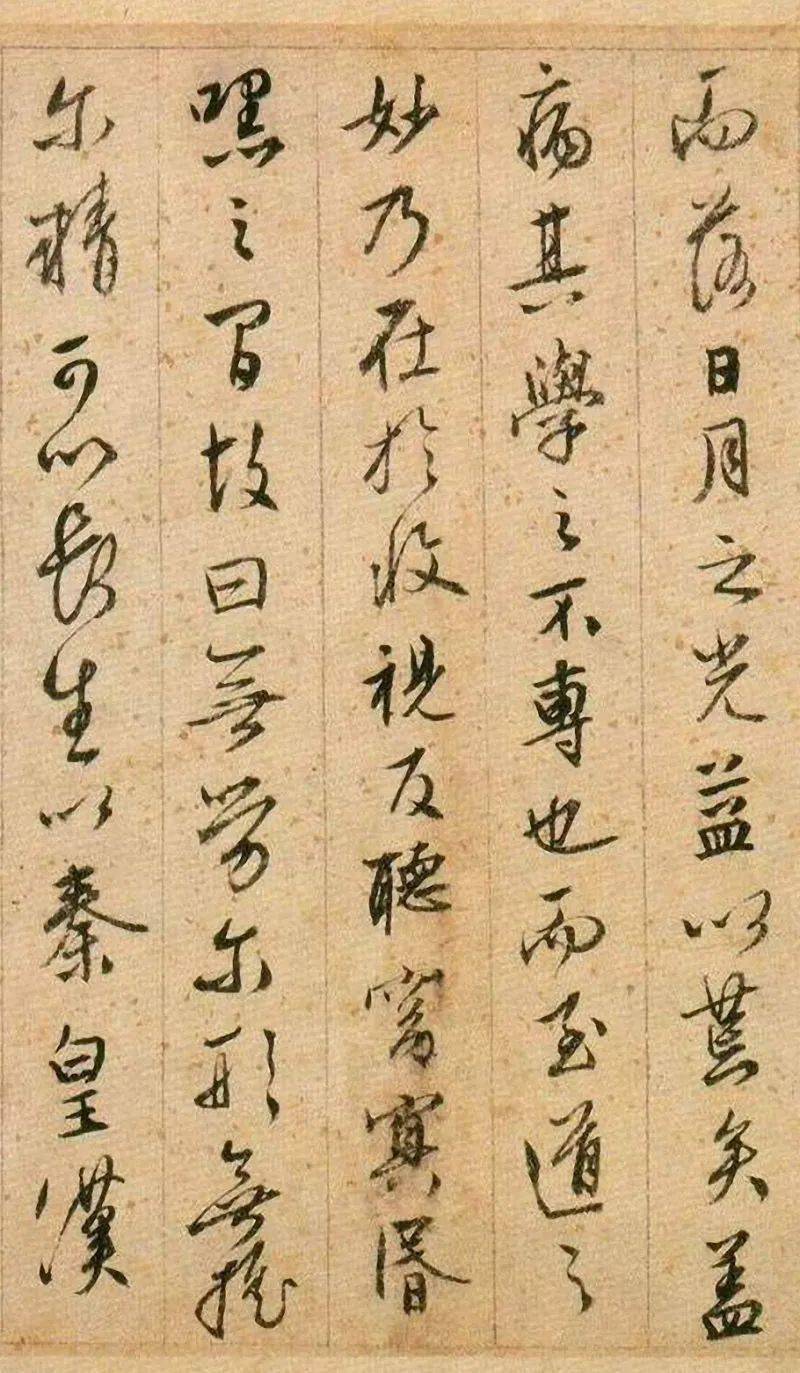 而落日月之光益以荒矣蓋
病其學之不專也而至道之
妙乃在於收視反聽窈冥昏
嘿之間故曰無勞尔形無搖
尔精可以長生以秦皇漢